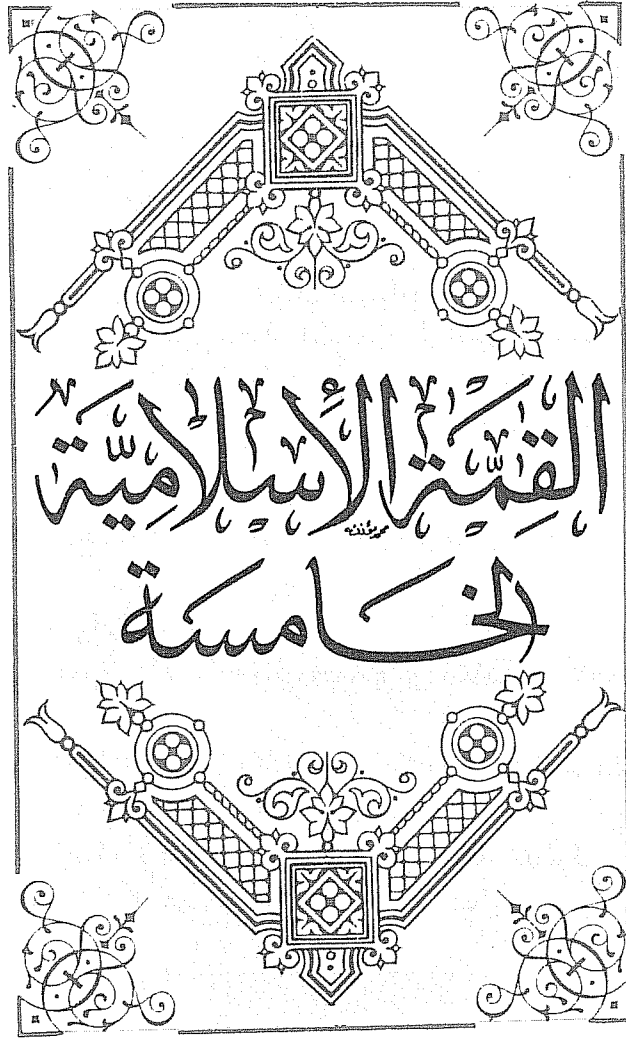 القِمَّة الأِسْلَامِيَّة
الخامسة